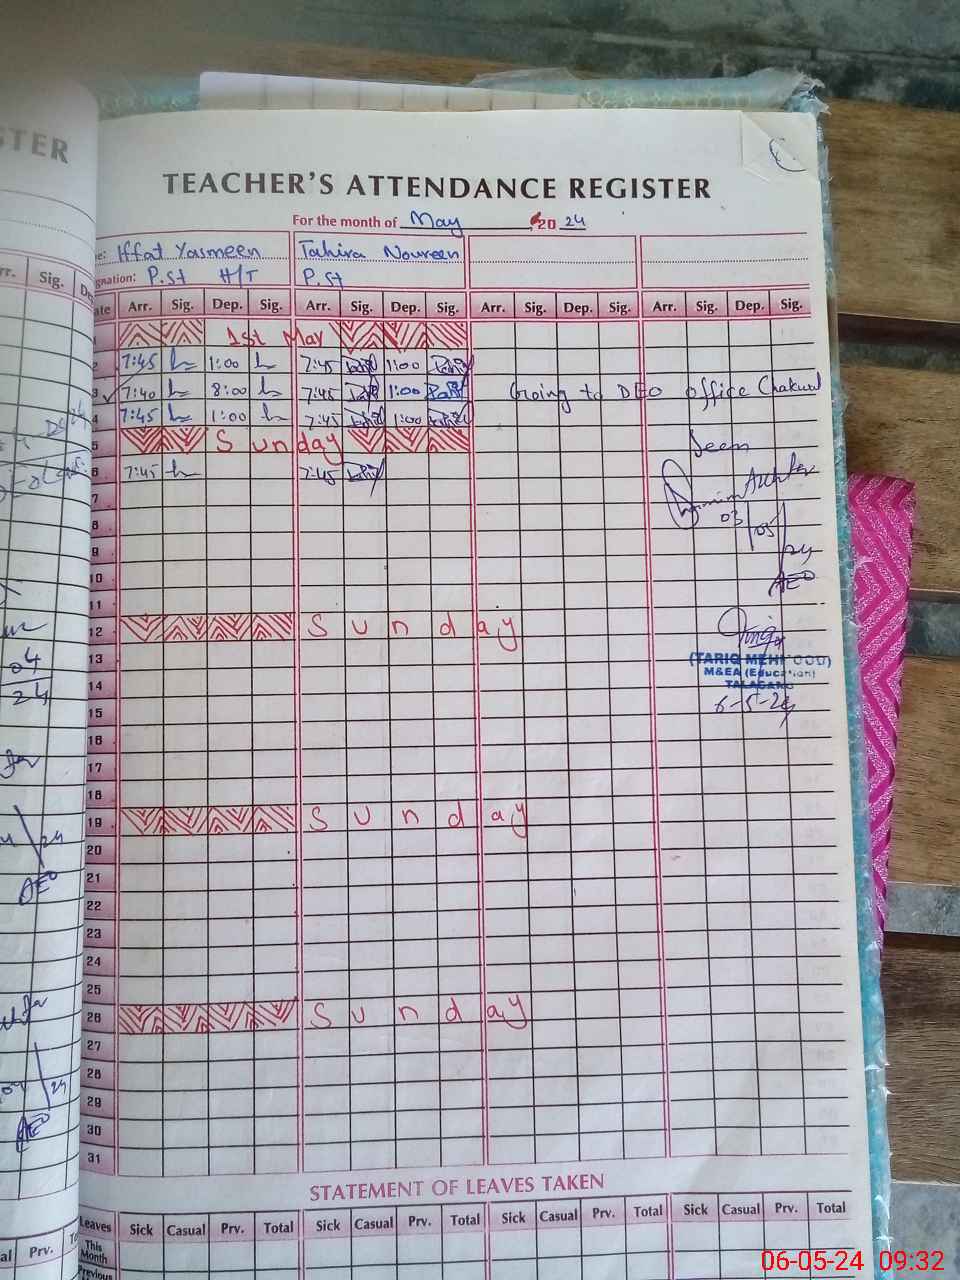 STER
TEACHER'S ATTENDANCE REGISTER
For the month of May 2024
e: Iffat Yasmeen Tahira Noureen
gnation: P.st H/T P.st
rr. Sig. De
ate Arr. Sig. Dep. Sig. Arr. Sig. Dep. Sig. Arr. Sig. Dep. Sig. Arr. Sig. Dep. Sig.
1st May
2 7:45 1:00 7:45 1:00
3 7:40 8:00 7:45 1:00 Going to DEO office Chakwal
4 7:45 1:00 7:45 1:00
5 Sunday Seen
6 7:45 7:45
7
8 03/05/24
9
10 AEO
11
12 Sunday
13 (TARIQ MEHMOOD)
M&EA (Education)
14 TALAGANG
6-5-24
15
16
17
18
19 Sunday
20
21
22
23
24
25
26 Sunday
27
28
29
30
31
04
24
24
AEO
24
AEO
STATEMENT OF LEAVES TAKEN
al Prv.
Leaves Sick Casual Prv. Total Sick Casual Prv. Total Sick Casual Prv. Total Sick Casual Prv. Total
This
Month
Previous
06-05-24 09:32